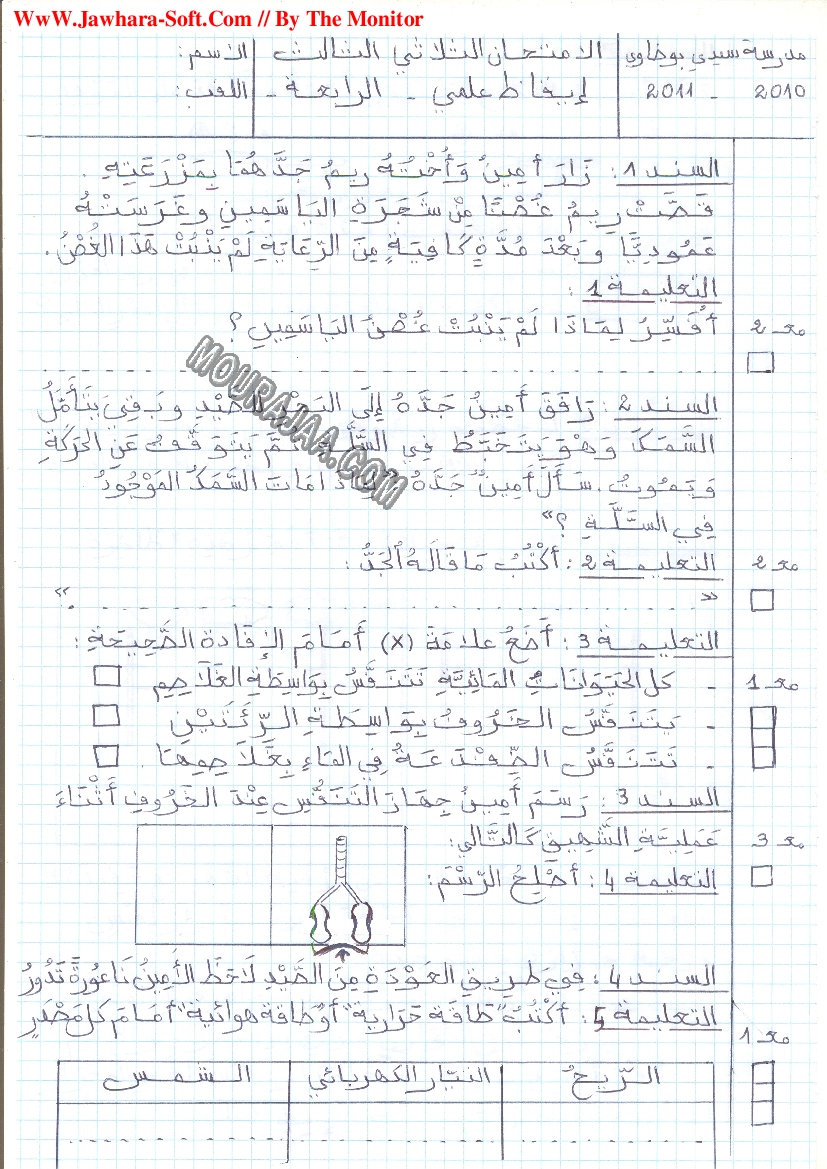 WwW.Jawhara-Soft.Com // By The Monitor
مدرسة سيدي بوضاوي الامتحان الثلاثي الثالث الاسم:
2010 - 2011 إيقاظ علمي - الرابعة - اللقب:
السند 1: زَارَ أَمِينُ وَأُخْتُهُ رِيمُ جَدَّهُمَا بِمَزْرَعَتِهِ.
قَصَّتْ رِيمُ غُصْنًا مِنْ شَجَرَةِ اليَاسَمِينِ وَغَرَسَتْهُ
عَمُودِيًّا وَبَعْدَ مُدَّةٍ كَافِيَةٍ مِنَ الرِّعَايَةِ لَمْ يَنْبُتْ هَذَا الغُصْنُ.
التعليمة 1:
أُفَسِّرُ لِمَاذَا لَمْ يَنْبُتْ غُصْنُ اليَاسَمِينِ؟
مع 2
MOURAJAA.COM
السند 2: رَافَقَ أَمِينُ جَدَّهُ إِلَى البَحْرِ لِلصَّيْدِ وَبَقِيَ يَتَأَمَّلُ
السَّمَكَ وَهْوَ يَتَخَبَّطُ فِي السَّلَّةِ ثُمَّ يَتَوَقَّفُ عَنِ الحَرَكَةِ
وَيَمُوتُ. سَأَلَ أَمِينُ جَدَّهُ "لِمَاذَا مَاتَ السَّمَكُ المَوْجُودُ
فِي السَّلَّةِ؟"
التعليمة 2: أَكْتُبُ مَا قَالَهُ الجَدُّ:
مع 2
" . . . . . . . . "
التعليمة 3: أَضَعُ علامَةَ (x) أَمَامَ الإِفَادَةِ الصَّحِيحَةِ:
- كل الحَيَوَانَاتِ المَائِيَّةِ تَتَنَفَّسُ بِوَاسِطَةِ الغَلَاصِمِ
مع 1
- يَتَنَفَّسُ الخَرُوفُ بِوَاسِطَةِ الرِّئَتَيْنِ
- تَتَنَفَّسُ الضِّفْدَعَةُ فِي المَاءِ بِغَلَاصِمِهَا.
السند 3: رَسَمَ أَمِينُ جِهَازَ التَنَفُّسِ عِنْدَ الخَرُوفِ أَثْنَاءَ
عَمَلِيَّةِ الشَّهِيقِ كَالتَّالِي:
مع 3
التعليمة 4: أُصْلِحُ الرَّسْمَ:
السند 4: فِي طَرِيقِ العَوْدَةِ مِنَ الصَّيْدِ لَاحَظَ الأَمِينُ نَاعُورَةً تَدُورُ
التعليمة 5: أَكْتُبُ "طاقة حَرَارية" أو "طاقة هوائية" أمَامَ كل مَصْدَرٍ
مع 1
الرّيحُ التيّار الكهربائي الشمس